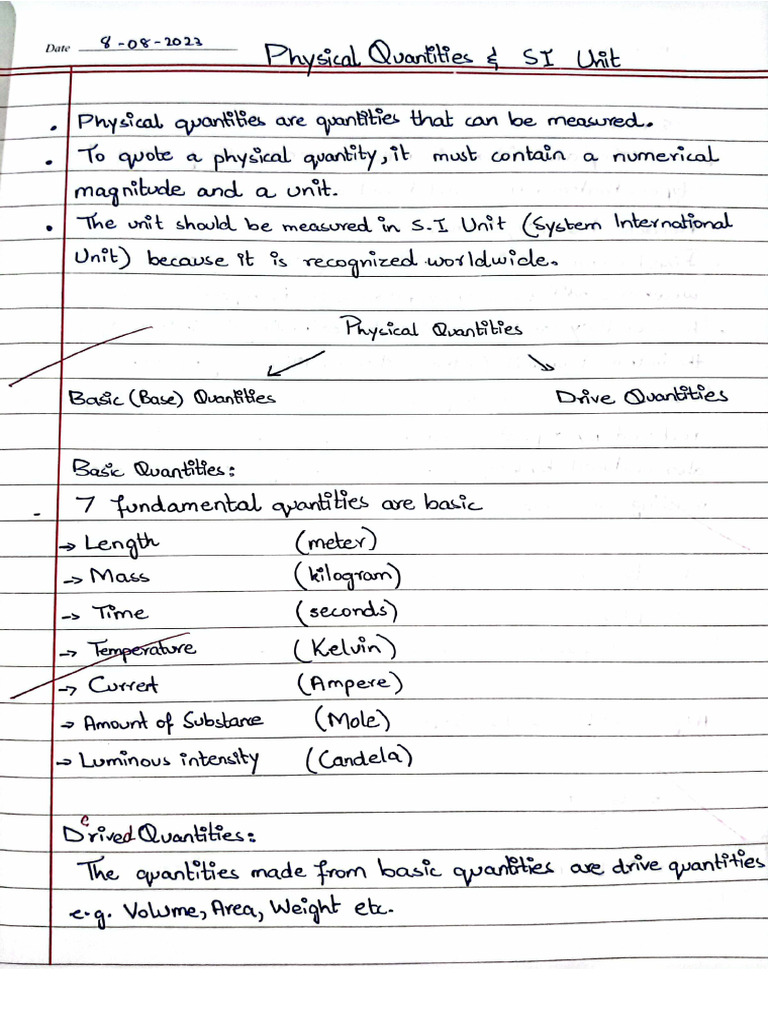 Date 8-08-2023
Physical Quantities & SI Unit
• Physical quantities are quantities that can be measured.
• To quote a physical quantity, it must contain a numerical
magnitude and a unit.
• The unit should be measured in S.I Unit (System International
Unit) because it is recognized worldwide.
Physical Quantities
Basic (Base) Quantities Drive Quantities
Basic Quantities:
- 7 fundamental quantities are basic
→ Length (meter)
→ Mass (kilogram)
→ Time (seconds)
→ Temperature (Kelvin)
→ Current (Ampere)
→ Amount of Substance (Mole)
→ Luminous intensity (Candela)
Derived Quantities:
The quantities made from basic quantities are drive quantities
e.g. Volume, Area, Weight etc.